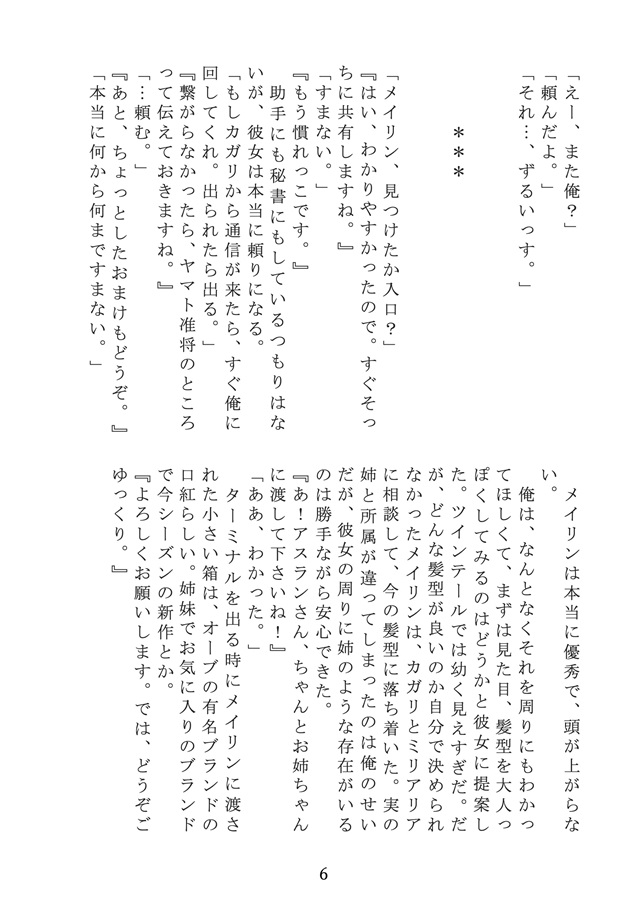 「えー、また俺？」
「頼んだよ。」
「それ…、ずるいっす。」
＊＊＊
「メイリン、見つけたか入口？」
『はい、わかりやすかったので。すぐそっ
ちに共有しますね。』
「すまない。」
『もう慣れっこです。』
　助手にも秘書にもしているつもりはな
いが、彼女は本当に頼りになる。
「もしカガリから通信が来たら、すぐ俺に
回してくれ。出られたら出る。」
『繋がらなかったら、ヤマト准将のところ
って伝えておきますね。』
「…頼む。」
『あと、ちょっとしたおまけもどうぞ。』
「本当に何から何まですまない。」
　メイリンは本当に優秀で、頭が上がらな
い。
　俺は、なんとなくそれを周りにもわかっ
てほしくて、まずは見た目、髪型を大人っ
ぽくしてみるのはどうかと彼女に提案し
た。ツインテールでは幼く見えすぎだ。だ
が、どんな髪型が良いのか自分で決められ
なかったメイリンは、カガリとミリアリア
に相談して、今の髪型に落ち着いた。実の
姉と所属が違ってしまったのは俺のせい
だが、彼女の周りに姉のような存在がいる
のは勝手ながら安心できた。
『あ！アスランさん、ちゃんとお姉ちゃん
に渡して下さいね！』
「ああ、わかった。」
　ターミナルを出る時にメイリンに渡さ
れた小さい箱は、オーブの有名ブランドの
口紅らしい。姉妹でお気に入りのブランド
で今シーズンの新作とか。
『よろしくお願いします。では、どうぞご
ゆっくり。』
6